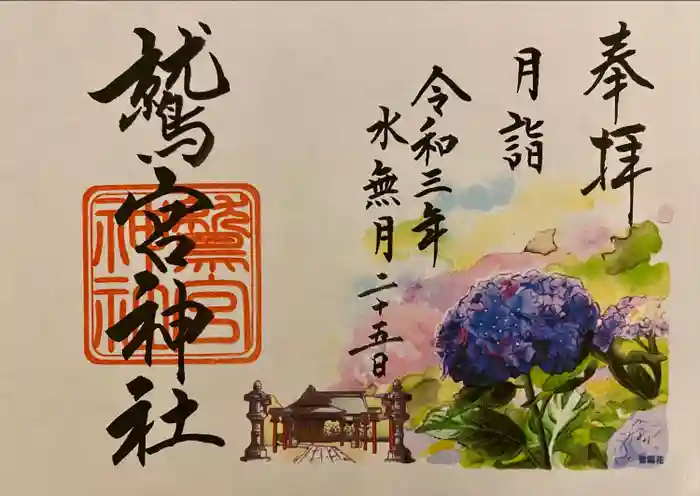 奉拝
月詣
令和三年
水無月二十五日
鷲宮神社
鷲宮
神社
紫陽花